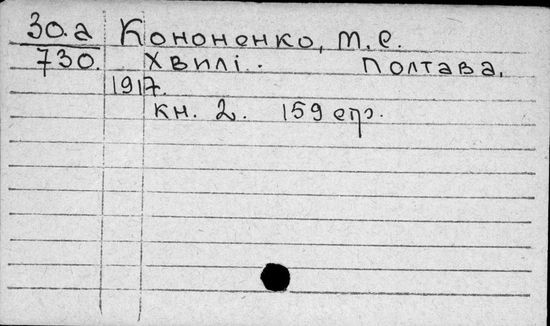 30.а Кононенко, М. С.
730. Хвилі. Полтава.
1917.
кн. 2. 159 стр.